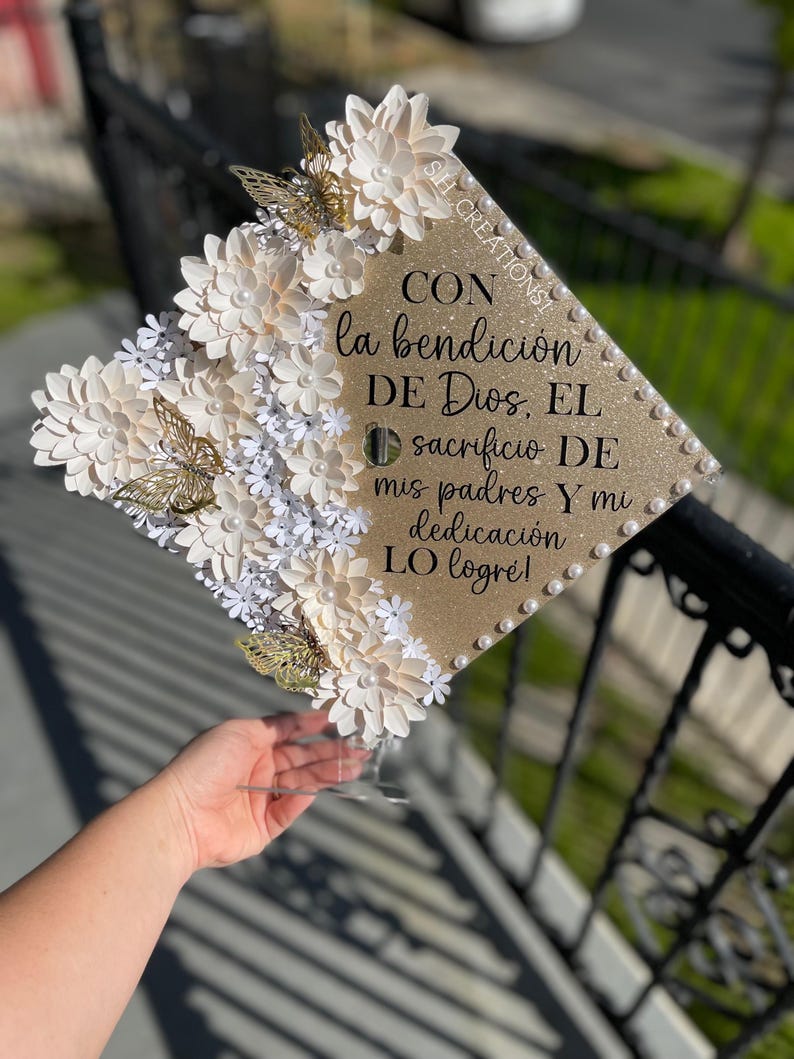 S.H. CREATIONS1
CON
la bendición
DE Dios, EL
sacrificio DE
mis padres Y mi
dedicación
LO logré!